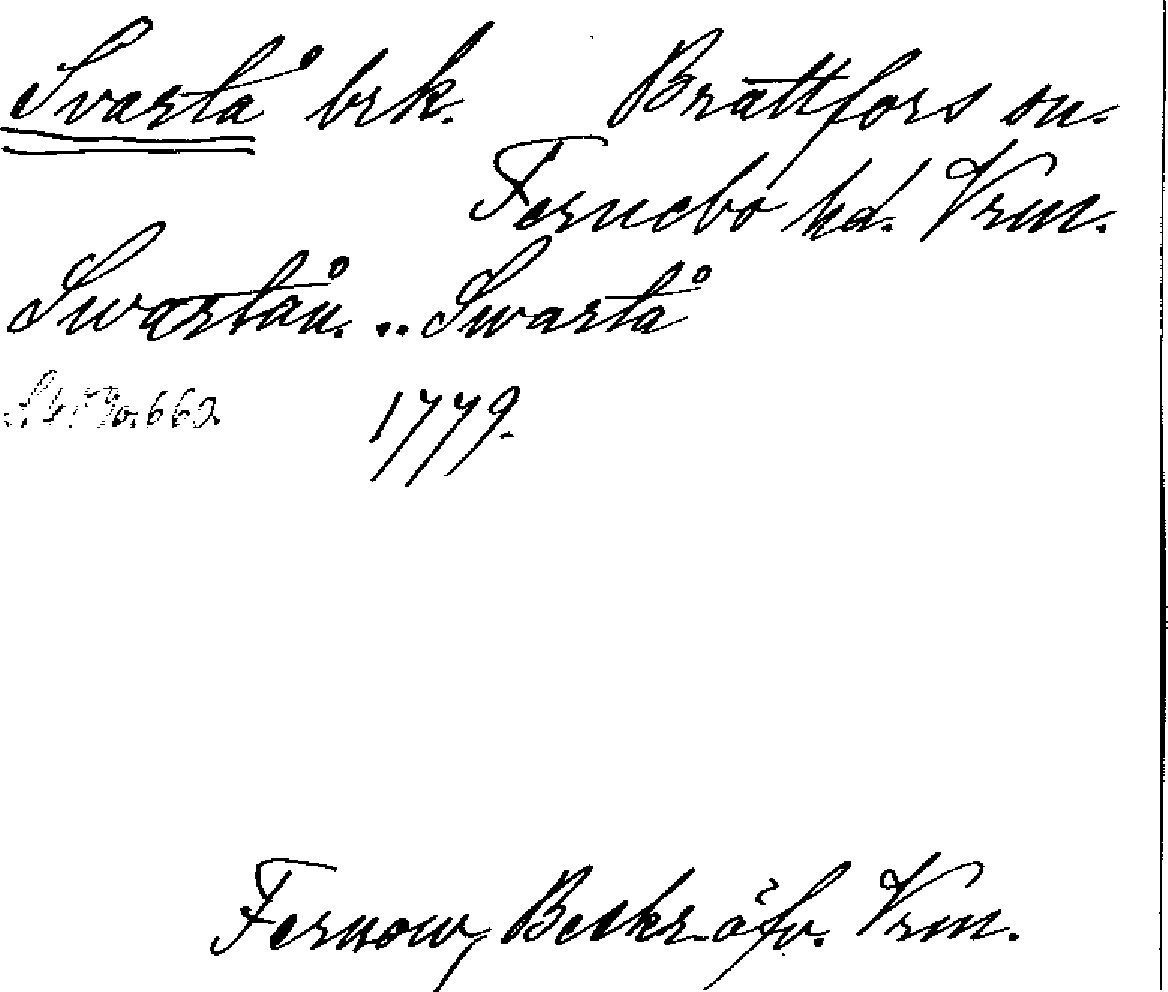 Svartå brk. Brattfors sn.
Fernebo hd. Vrm.
Swartån. .. Swartå
1779.
Fernow, Beskr. öfv. Vrm.